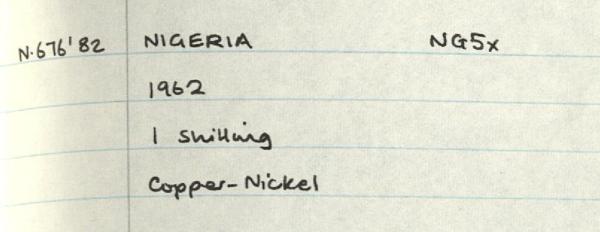 N.676'82 NIGERIA NG5x
1962
1 shilling
Copper-Nickel